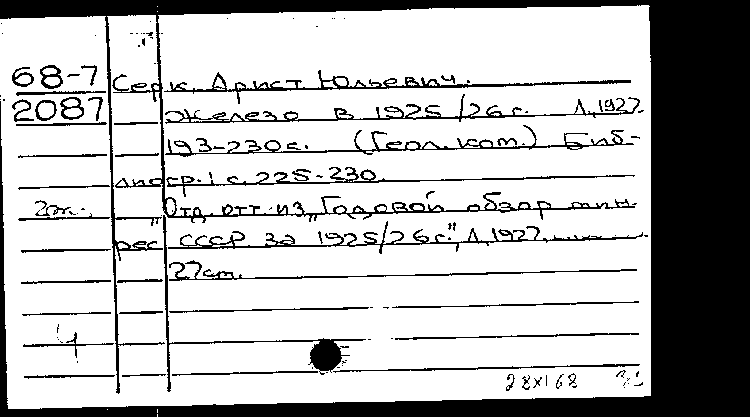 68-7 Серк, Арист Юльевич.
2087 Железо в 1925/26 г. Л., 1927
193-230 с. (Геол. ком.) Библ-
иогр.: с. 225-230.
2эк. "Отд. отт. из "Годовой обзор мин.
рес. СССР за 1925/26 г.", Л., 1927.
27 см.
4
28XI68